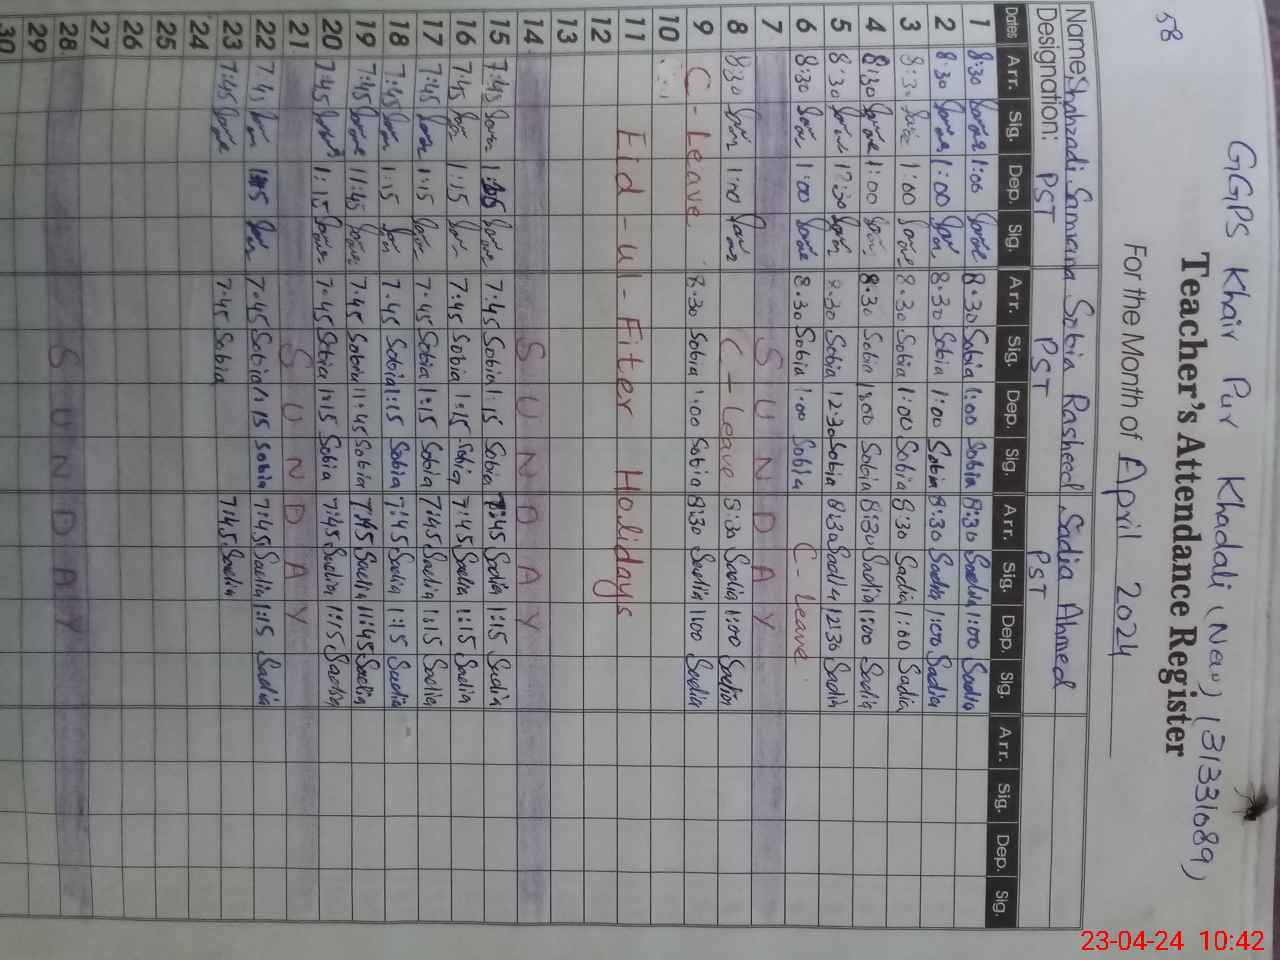 58
GGPS Khair Pur Khadali (New) (31331089)
Teacher's Attendance Register
For the Month of April 2024
Name: Shahzadi Samrena Sobia Rasheed Sadia Ahmed
Designation: PST PST PST
Dates Arr. Sig. Dep. Sig. Arr. Sig. Dep. Sig. Arr. Sig. Dep. Sig. Arr. Sig. Dep. Sig.
1 8:30 1:00 8.30 Sobia 1:00 Sobia 8:30 Sadia 1:00 Sadia
2 8:30 1:00 8.30 Sobia 1:00 Sobia 8:30 Sadia 1:00 Sadia
3 8:30 1:00 8.30 Sobia 1:00 Sobia 8:30 Sadia 1:00 Sadia
4 8:30 1:00 8.30 Sobia 1:00 Sobia 8:30 Sadia 1:00 Sadia
5 8:30 12:30 8.30 Sobia 12:30 Sobia 8:30 Sadia 12:30 Sadia
6 8:30 1:00 8.30 Sobia 1:00 Sobia C-Leave
7 SUNDAY
8 8:30 1:00 C-Leave 8:30 Sadia 1:00 Sadia
9 C-Leave 8:30 Sobia 1:00 Sobia 8:30 Sadia 1:00 Sadia
10
11 Eid-ul-Fiter Holidays
12
13
14 SUNDAY
15 7:45 1:15 7:45 Sobia 1:15 Sobia 7:45 Sadia 1:15 Sadia
16 7:45 1:15 7:45 Sobia 1:15 Sobia 7:45 Sadia 1:15 Sadia
17 7:45 1:15 7:45 Sobia 1:15 Sobia 7:45 Sadia 1:15 Sadia
18 7:45 1:15 7.45 Sobia 1:15 Sobia 7:45 Sadia 1:15 Sadia
19 7:45 11:45 7.45 Sobia 11:45 Sobia 7:45 Sadia 11:45 Sadia
20 7:45 1:15 7.45 Sobia 1:15 Sobia 7:45 Sadia 1:15 Sadia
21 SUNDAY
22 7:45 1:15 7.45 Sobia 1:15 Sobia 7:45 Sadia 1:15 Sadia
23 7:45 7.45 Sobia 7:45 Sadia
24
25
26
27
28 SUNDAY
29
30
23-04-24 10:42